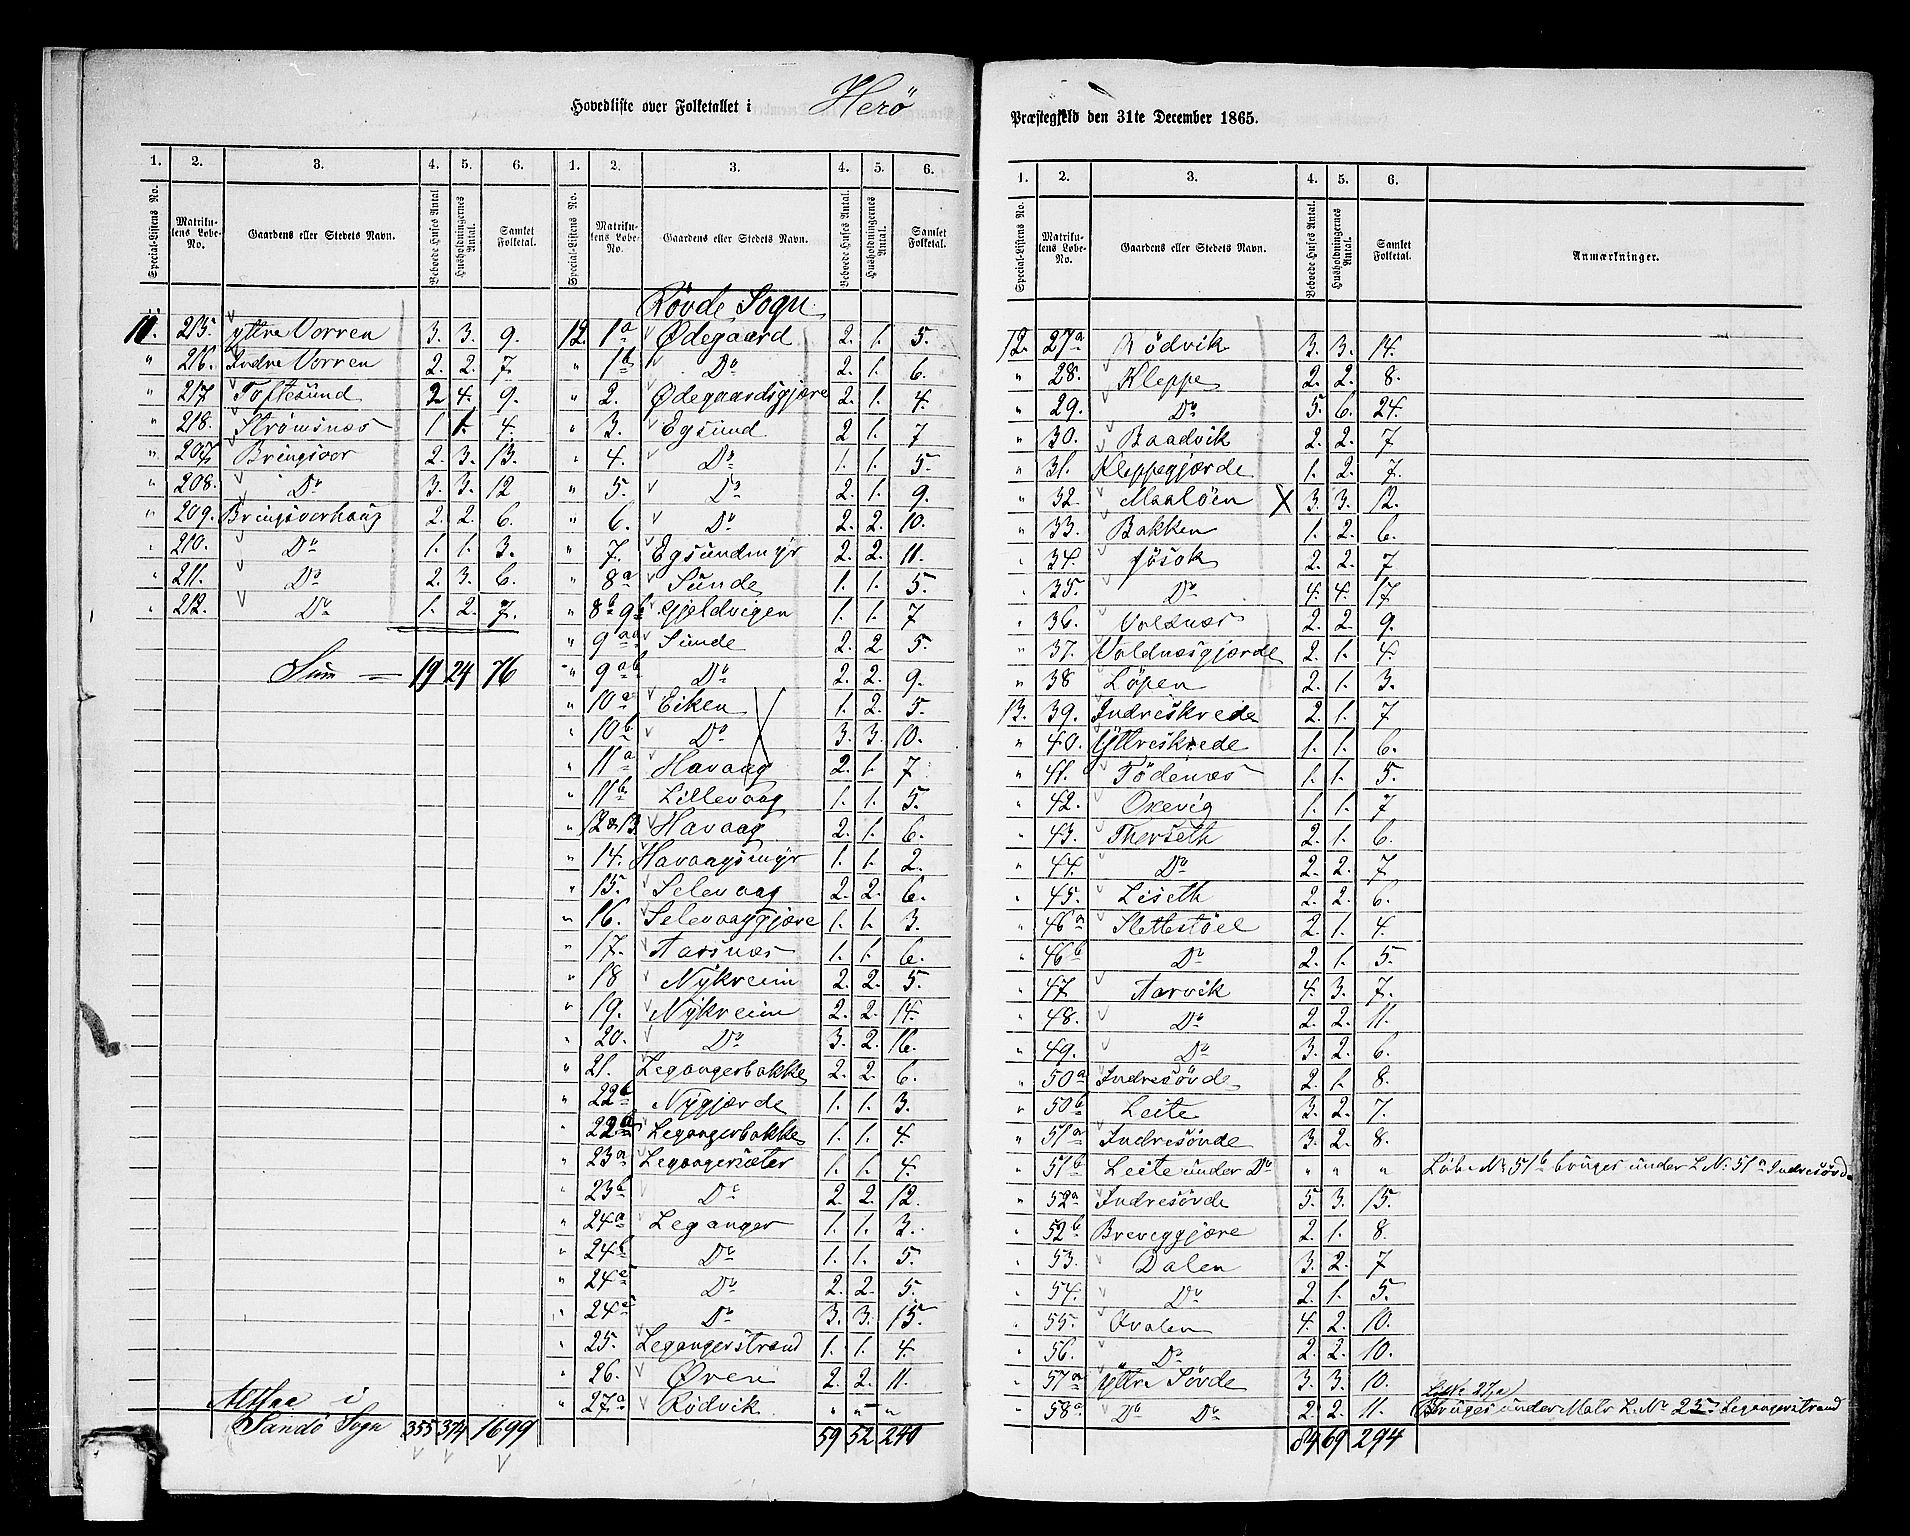 Hovedliste over Folketallet i Herö
1. 2. 3. 4. 5. 6. 1. 2. 3. 4. 5. 6.
Special-Listens No. Matrikulens Løbe-No. Gaardens eller Stedets Navn. Beboede Huses Antal Husholdningernes Antal. Samlet Folketal. Special-Listens No. Matrikulens Løbe-No. Gaardens eller Stedets Navn. Beboede Huses Antal. Husholdningernes Antal. Samlet Folketal.
11. 215. Yttre Vorren 3. 3. 9.
" 216. Indre Vorren 2. 2. 7.
" 217 Toftesund 2 4. 9.
" 218. Strömsnæs 1 1. 4.
" 207 Bringsvor 2. 3. 13.
" 208. Do 3. 3. 12
" 209. Bringsvorhaug 2. 2. 6.
" 210. Do 1. 1. 3.
" 211. Do 2. 3. 6.
" 212. Do 1. 2. 7.
Sum = 19 24 76
Altsaa i
Sandö Sogn 355 374 1699
Rövde Sogn
12. 1a Ødegaard 2. 1. 5.
" 1b Do 2. 1. 6.
" 2. Ødegaardsgjære 2. 1. 4.
" 3. Egsund 2 1. 7
" 4. Do 1. 1. 5.
" 5. Do 2. 1. 9.
" 6. Do 2. 2. 10.
" 7. Egsundmyr 2. 2. 11.
" 8a Sunde 1. 1. 5.
" 8b 9b Gjeldvigen 1. 1. 7
" 9aa Sunde 2. 2. 5.
" 9ab Do 2. 2. 9.
" 10a Eiken 1. 2. 5.
" 10b Do 3. 3. 10.
" 11a Havaag 2. 1. 7
" 11b Lillevaag 1. 1. 5.
" 12 & 13. Havaag 2. 1. 6.
" 14. Havaagsmyr 1. 1. 2.
" 15. Selevaag 2. 2. 6.
" 16. Selevaaggjære 1. 1. 3.
" 17. Aarsnæs 1. 1. 6.
" 18 Nykreim 2. 2. 5.
" 19. Nykreim 2. 2. 14.
" 20. Do 3. 2. 16.
" 21. Legangerbakke 2. 2. 6.
" 22b Nygjærde 1. 1. 3.
" 22a Legangerbakke 1. 1. 4.
" 23a Legangersæter 1. 1. 4.
" 23b Do 2. 2. 12.
" 24a Leganger 1. 1. 3.
" 24b Do 1. 1. 5.
" 24c Do 2. 2. 5.
" 24 Do 3. 3. 15.
" 25. Legangerstrand 1. 1. 4.
" 26. Øren 2. 2. 11.
" 27a Rødvik " " "
59 52 240
Præstegjeld den 31te December 1865.
1. 2. 3. 4. 5. 6.
Special-Listens No. Matrikulens Løbe-No. Gaardens eller Stedets Navn. Beboede Huses Antal. Husholdningernes Antal. Samlet Folketal. Anmærkninger.
12. 27a Rödvik 3. 3. 14.
" 28. Kleppe 2. 2. 8.
" 29. Do 5. 6. 24.
" 30. Baadvik 2. 2. 7
" 31. Kleppegjærde 1. 2. 7.
" 32. Maalöen X 3. 3. 12.
" 33. Bakken 1. 2. 6.
" 34. Jösok 2. 2. 7
" 35. Do 4. 4. 17
" 36. Voldnæs 2. 2 9.
" 37. Voldnæsgjærde 2. 1. 4.
" 38 Löpen 2. 1. 3.
13. 39. Indreskrede 2. 1. 7
" 40. Yttreskrede 1. 1. 6.
" 41. Födenæs 1. 1. 5.
" 42. Oxevig 1. 1. 7
" 43. Therseth 2. 1. 6.
" 44. Do 2. 2. 7
" 45. Liseth 2. 2. 6.
" 46a Slettestöel 2. 1. 4.
" 46b Do 2. 1. 5.
" 47 Aarvik 4. 3. 7.
" 48. Do 2. 2. 11.
" 49. Do 3. 2. 6.
" 50a Indresövde 2. 1. 8.
" 50b Leite 3. 2. 7.
" 51a Indresövde 3. 2. 8.
" 51b Leite under Do " " " Löbe No 51b bruges under L. No 51a Indresövde
" 52a Indresövde 5. 3. 15.
" 52b Breviggjære 2. 1. 8.
" 53. Dalen 3. 2. 7
" 54. Do 2. 1. 5.
" 55. Ovalen 4. 2. 10.
" 56. Do 2. 2. 10.
" 57a Yttre Sövde 3. 3. 10.
" 58a Do Do 2. 2. 11. Bruges under Matr L. No 25 Legangerstrand
84 69 294